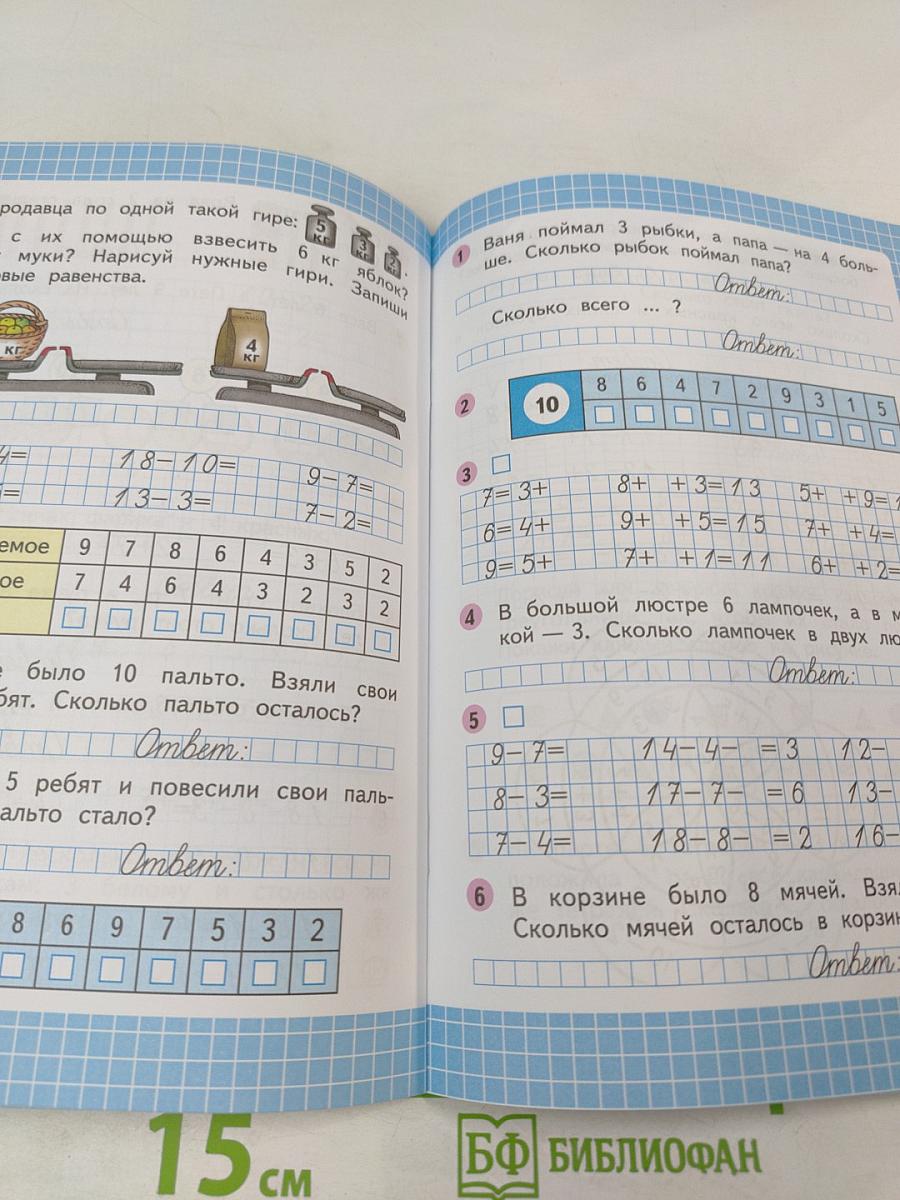 родавца по одной такой гире: 5 кг 3 кг 2
с их помощью взвесить 6 кг яблок?
муки? Нарисуй нужные гири. Запиши
вые равенства.
кг
4 кг
4=
18-10=
9-7=
=
13-3=
7-2=
емое 9 7 8 6 4 3 5 2
ое 7 4 6 4 3 2 3 2
было 10 пальто. Взяли свои
бят. Сколько пальто осталось?
Ответ:
5 ребят и повесили свои паль-
альто стало?
Ответ:
8 6 9 7 5 3 2
1 Ваня поймал 3 рыбки, а папа — на 4 боль-
ше. Сколько рыбок поймал папа?
Ответ:
Сколько всего ... ?
Ответ:
2 10 8 6 4 7 2 9 3 1 5
3
7=3+ 8+ +3=13 5+ +9=1
6=4+ 9+ +5=15 7+ +4=
9=5+ 7+ +1=11 6+ +2=
4 В большой люстре 6 лампочек, а в м
кой — 3. Сколько лампочек в двух лю
Ответ:
5
9-7= 14-4- =3 12-
8-3= 17-7- =6 13-
7-4= 18-8- =2 16-
6 В корзине было 8 мячей. Взя
Сколько мячей осталось в корзин
Ответ:
15 см
БФ БИБЛИОФАН